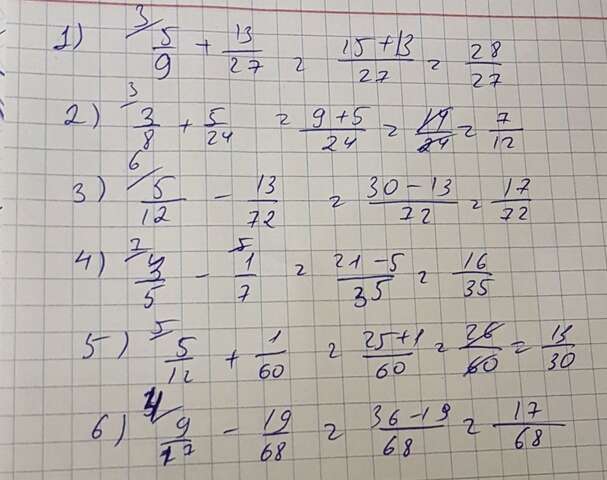 1) 3/ 5/9 + 13/27 = (15+13)/27 = 28/27
2) 3/ 3/8 + 5/24 = (9+5)/24 = 14/24 = 7/12
3) 6/ 5/12 - 13/72 = (30-13)/72 = 17/72
4) 7/ 3/5 - 5/ 1/7 = (21-5)/35 = 16/35
5) 5/ 5/12 + 1/60 = (25+1)/60 = 26/60 = 13/30
6) 4/ 9/17 - 19/68 = (36-19)/68 = 17/68